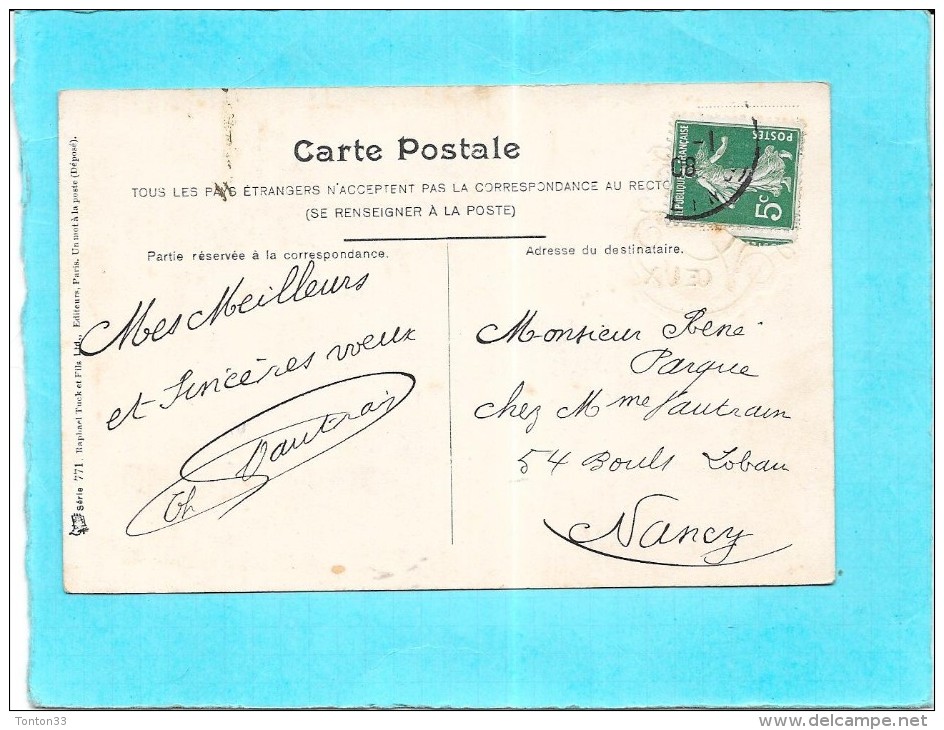 Carte Postale
TOUS LES PAYS ÉTRANGERS N'ACCEPTENT PAS LA CORRESPONDANCE AU RECTO
(SE RENSEIGNER À LA POSTE)
Partie réservée à la correspondance.
Mes Meilleurs
et Sincères voeux
Th Vautrain
Adresse du destinataire.
Monsieur René
Parque
chez Mme Vautrain
54 Bouls Lobau
Nancy
Série 771. Raphael Tuck et Fils Ltd., Editeurs, Paris. Un mot à la poste (Déposé).
RÉPUBLIQUE FRANÇAISE
POSTES
5c
1-
08
Tonton33
www.delcampe.net